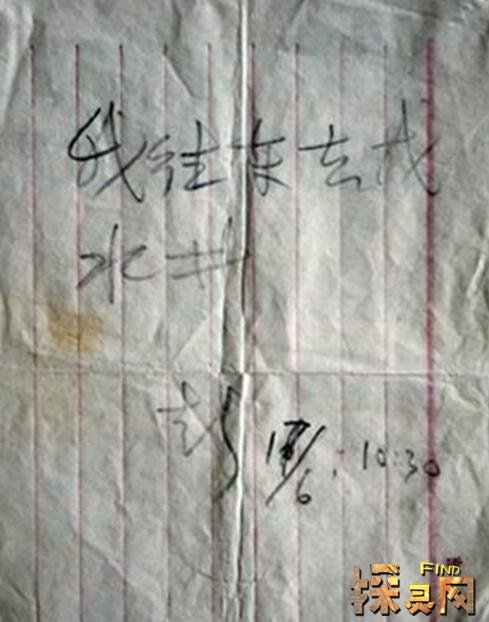 我往东去找
水井
彭 17/6 : 10:30
FIND
探灵网